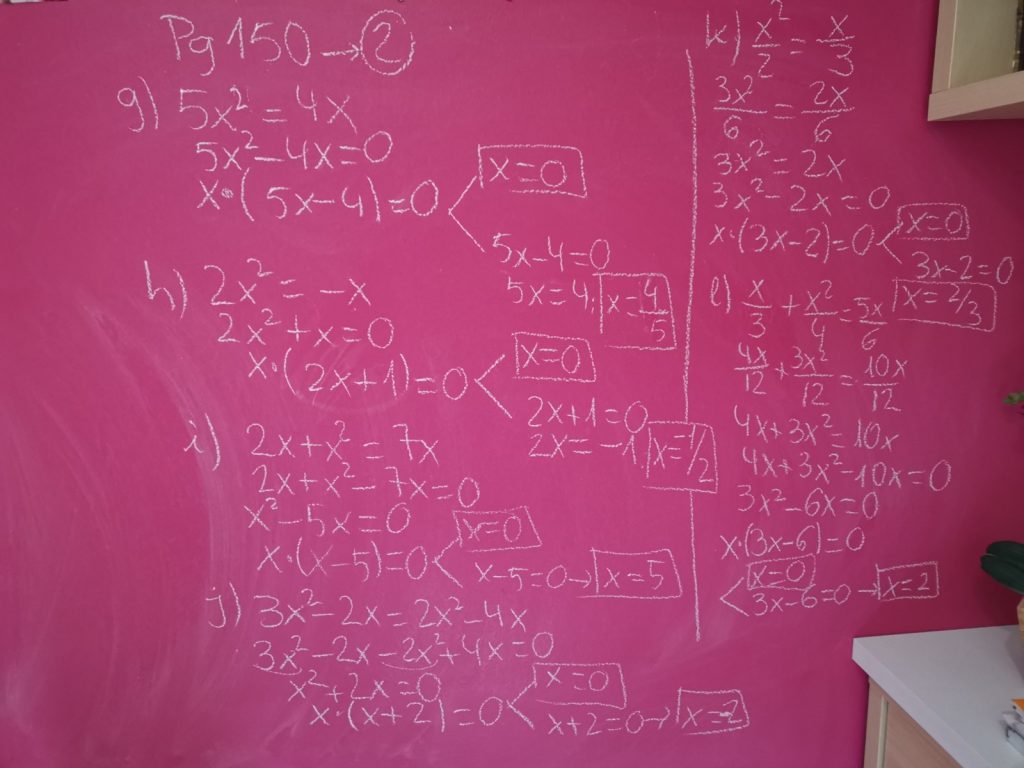 Pg 150 → 2
g) 5x² = 4x
5x² - 4x = 0
x · (5x - 4) = 0
x = 0
5x - 4 = 0
5x = 4; x = 4/5
h) 2x² = -x
2x² + x = 0
x · (2x + 1) = 0
x = 0
2x + 1 = 0
2x = -1 x = 1/2
i) 2x + x² = 7x
2x + x² - 7x = 0
x² - 5x = 0
x · (x - 5) = 0
x = 0
x - 5 = 0 → x = 5
j) 3x² - 2x = 2x² - 4x
3x² - 2x - 2x² + 4x = 0
x² + 2x = 0
x · (x + 2) = 0
x = 0
x + 2 = 0 → x = -2
k) x²/2 = x/3
3x²/6 = 2x/6
3x² = 2x
3x² - 2x = 0
x · (3x - 2) = 0
x = 0
3x - 2 = 0
x = 2/3
l) x/3 + x²/4 = 5x/6
4x/12 + 3x²/12 = 10x/12
4x + 3x² = 10x
4x + 3x² - 10x = 0
3x² - 6x = 0
x · (3x - 6) = 0
x = 0
3x - 6 = 0 → x = 2